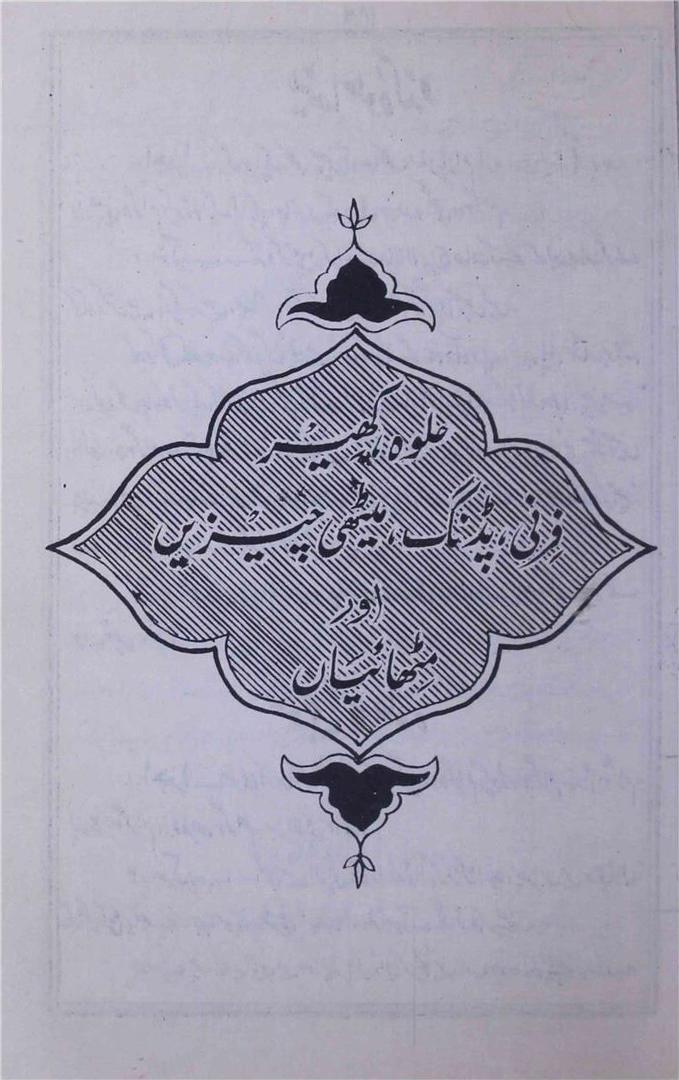 حلوہ، کھیر
فرنی، پڈنگ، میٹھی چیزیں
اور
مٹھائیاں